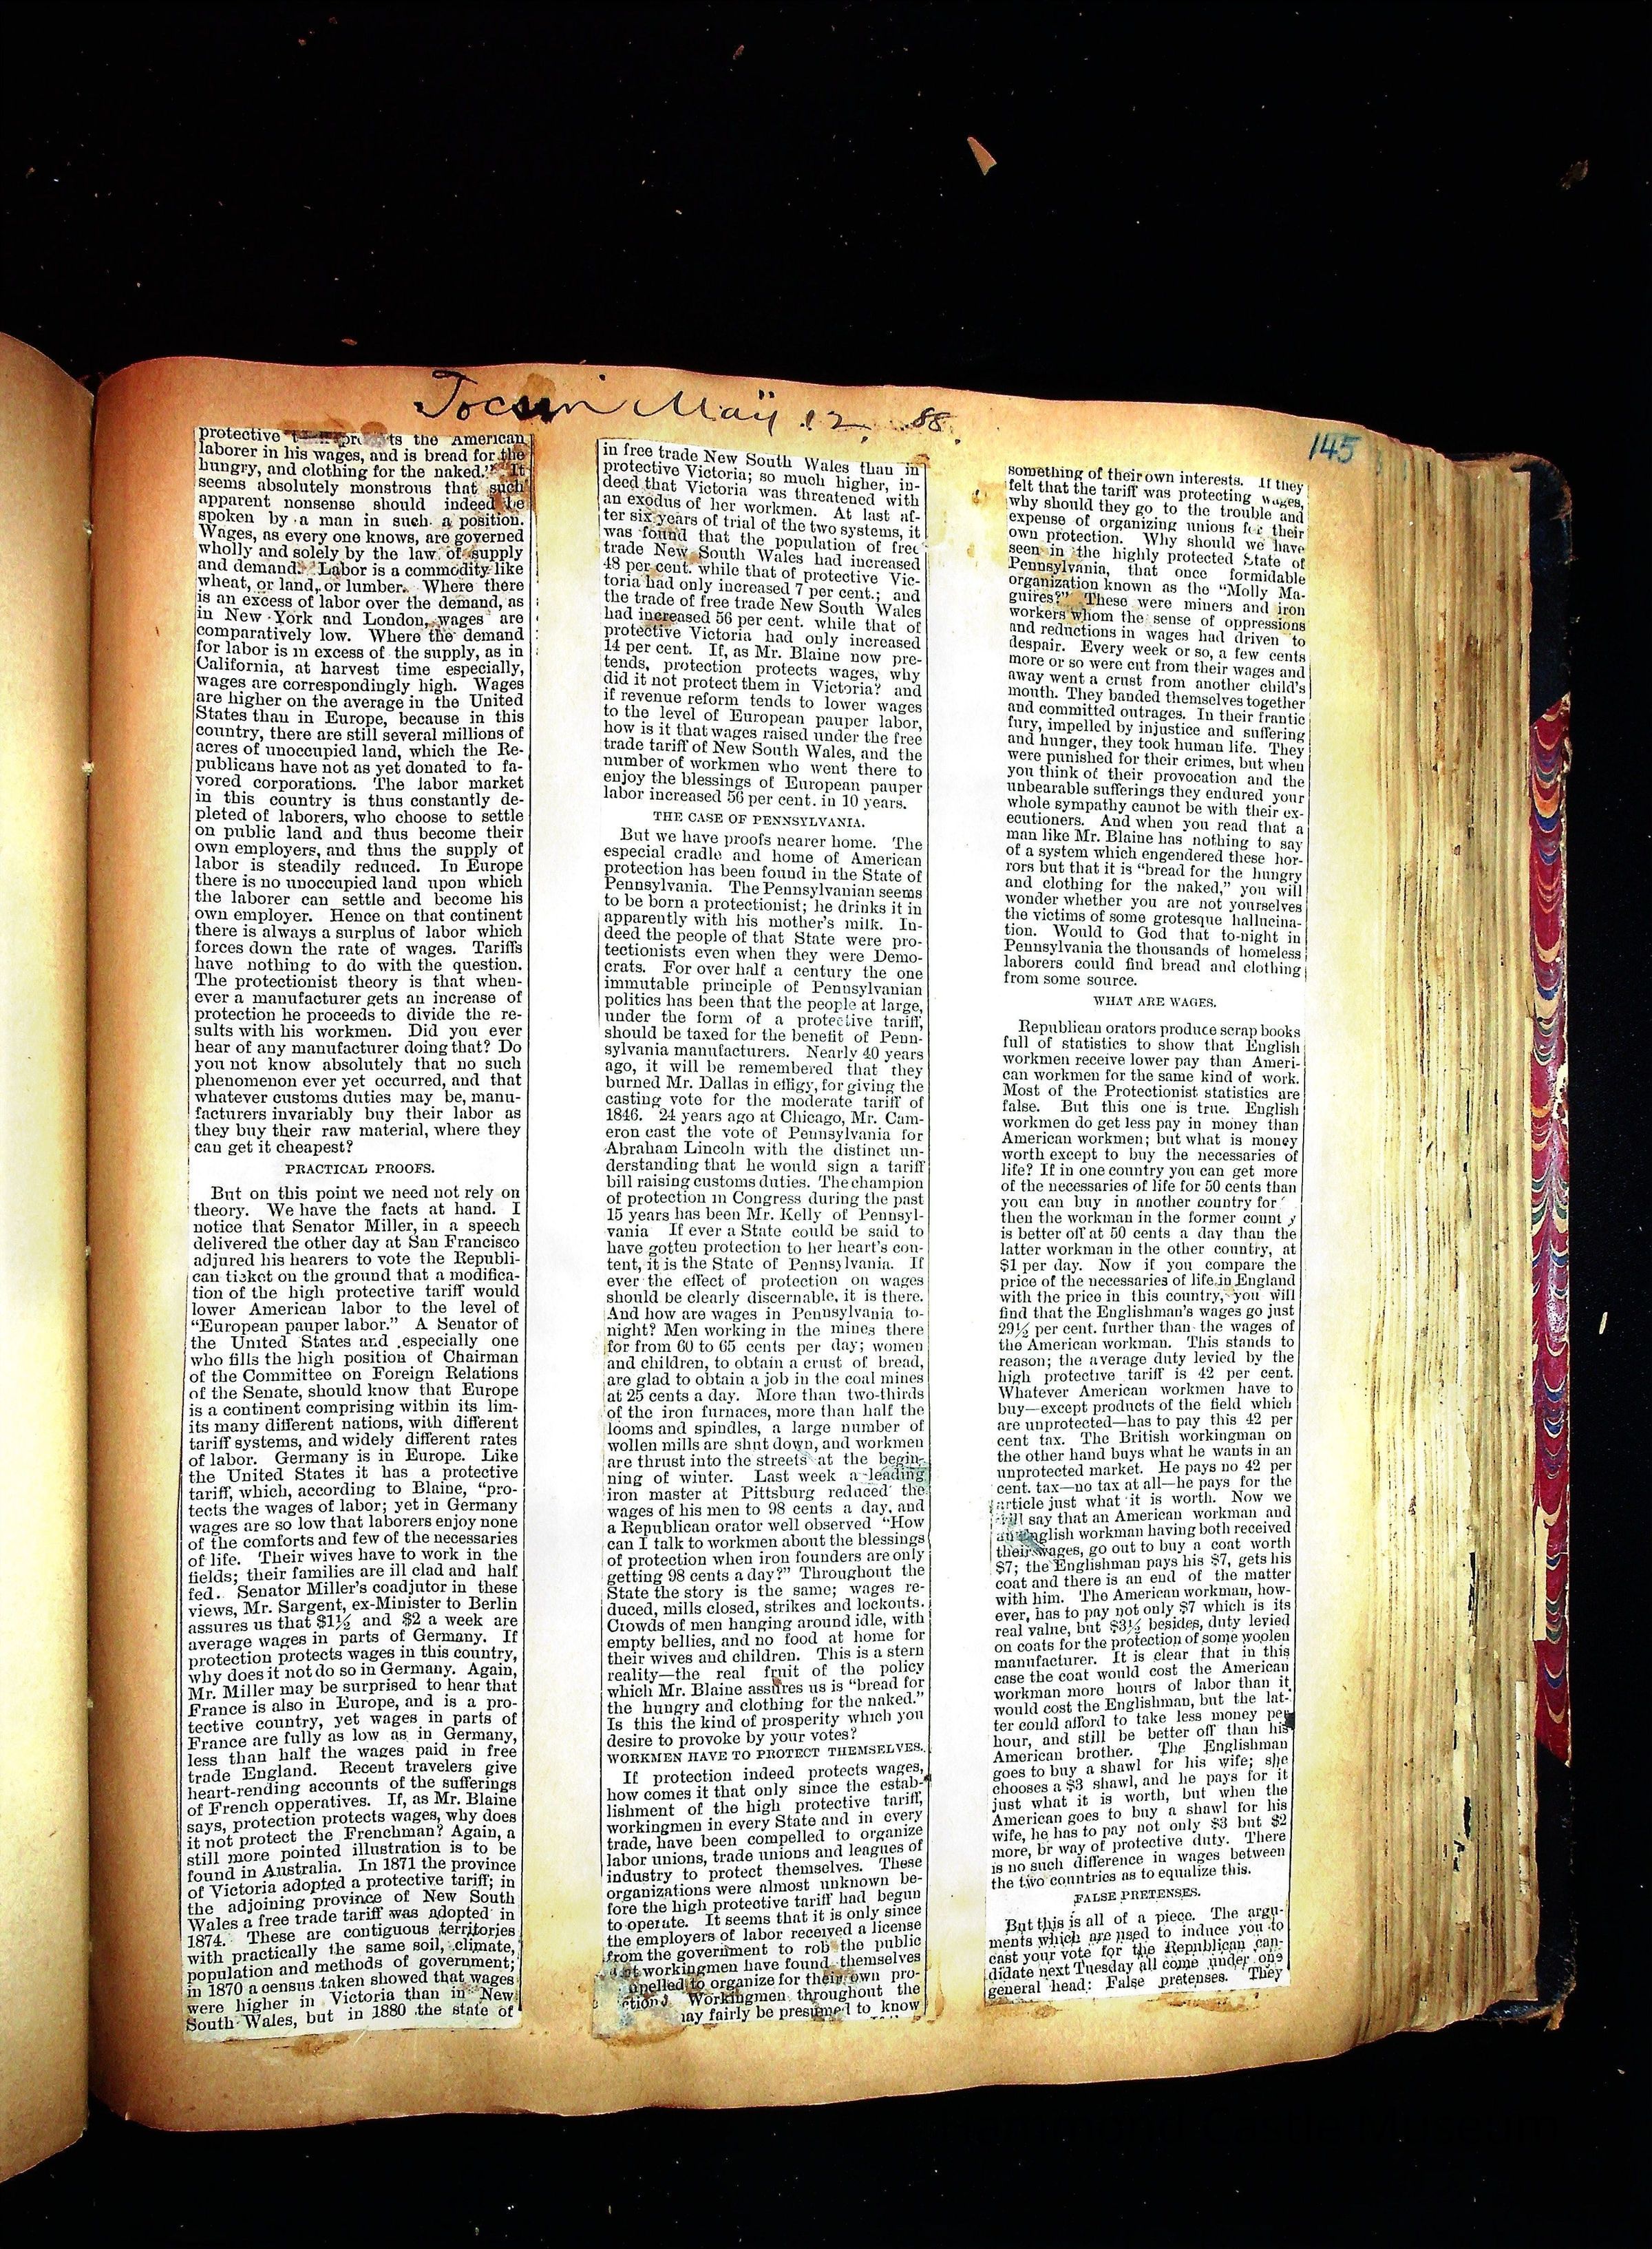 Tocsin May 12, 88.
145
protective the American
laborer in his wages, and is bread for the
hungry, and clothing for the naked." It
seems absolutely monstrous that such
apparent nonsense should indeed be
spoken by a man in such a position.
Wages, as every one knows, are governed
wholly and solely by the law of supply
and demand. Labor is a commodity like
wheat, or land, or lumber. Where there
is an excess of labor over the demand, as
in New York and London, wages are
comparatively low. Where the demand
for labor is in excess of the supply, as in
California, at harvest time especially,
wages are correspondingly high. Wages
are higher on the average in the United
States than in Europe, because in this
country, there are still several millions of
acres of unoccupied land, which the Re-
publicans have not as yet donated to fa-
vored corporations. The labor market
in this country is thus constantly de-
pleted of laborers, who choose to settle
on public land and thus become their
own employers, and thus the supply of
labor is steadily reduced. In Europe
there is no unoccupied land upon which
the laborer can settle and become his
own employer. Hence on that continent
there is always a surplus of labor which
forces down the rate of wages. Tariffs
have nothing to do with the question.
The protectionist theory is that when-
ever a manufacturer gets an increase of
protection he proceeds to divide the re-
sults with his workmen. Did you ever
hear of any manufacturer doing that? Do
you not know absolutely that no such
phenomenon ever yet occurred, and that
whatever customs duties may be, manu-
facturers invariably buy their labor as
they buy their raw material, where they
can get it cheapest?
PRACTICAL PROOFS.
But on this point we need not rely on
theory. We have the facts at hand. I
notice that Senator Miller, in a speech
delivered the other day at San Francisco
adjured his hearers to vote the Republi-
can ticket on the ground that a modifica-
tion of the high protective tariff would
lower American labor to the level of
"European pauper labor." A Senator of
the United States and especially one
who fills the high position of Chairman
of the Committee on Foreign Relations
of the Senate, should know that Europe
is a continent comprising within its lim-
its many different nations, with different
tariff systems, and widely different rates
of labor. Germany is in Europe. Like
the United States it has a protective
tariff, which, according to Blaine, "pro-
tects the wages of labor; yet in Germany
wages are so low that laborers enjoy none
of the comforts and few of the necessaries
of life. Their wives have to work in the
fields; their families are ill clad and half
fed. Senator Miller's coadjutor in these
views, Mr. Sargent, ex-Minister to Berlin
assures us that $1½ and $2 a week are
average wages in parts of Germany. If
protection protects wages in this country,
why does it not do so in Germany. Again,
Mr. Miller may be surprised to hear that
France is also in Europe, and is a pro-
tective country, yet wages in parts of
France are fully as low as in Germany,
less than half the wages paid in free
trade England. Recent travelers give
heart-rending accounts of the sufferings
of French opperatives. If, as Mr. Blaine
says, protection protects wages, why does
it not protect the Frenchman? Again, a
still more pointed illustration is to be
found in Australia. In 1871 the province
of Victoria adopted a protective tariff; in
the adjoining province of New South
Wales a free trade tariff was adopted in
1874. These are contiguous territories
with practically the same soil, climate,
population and methods of government;
in 1870 a census taken showed that wages
were higher in Victoria than in New
South Wales, but in 1880 the state of
in free trade New South Wales than in
protective Victoria; so much higher, in-
deed that Victoria was threatened with
an exodus of her workmen. At last af-
ter six years of trial of the two systems, it
was found that the population of free
trade New South Wales had increased
48 per cent. while that of protective Vic-
toria had only increased 7 per cent.; and
the trade of free trade New South Wales
had increased 56 per cent. while that of
protective Victoria had only increased
14 per cent. If, as Mr. Blaine now pre-
tends, protection protects wages, why
did it not protect them in Victoria? and
if revenue reform tends to lower wages
to the level of European pauper labor,
how is it that wages raised under the free
trade tariff of New South Wales, and the
number of workmen who went there to
enjoy the blessings of European pauper
labor increased 56 per cent. in 10 years.
THE CASE OF PENNSYLVANIA.
But we have proofs nearer home. The
especial cradle and home of American
protection has been found in the State of
Pennsylvania. The Pennsylvanian seems
to be born a protectionist; he drinks it in
apparently with his mother's milk. In-
deed the people of that State were pro-
tectionists even when they were Demo-
crats. For over half a century the one
immutable principle of Pennsylvanian
politics has been that the people at large,
under the form of a protective tariff,
should be taxed for the benefit of Penn-
sylvania manufacturers. Nearly 40 years
ago, it will be remembered that they
burned Mr. Dallas in effigy, for giving the
casting vote for the moderate tariff of
1846. 24 years ago at Chicago, Mr. Cam-
eron cast the vote of Pennsylvania for
Abraham Lincoln with the distinct un-
derstanding that he would sign a tariff
bill raising customs duties. The champion
of protection in Congress during the past
15 years has been Mr. Kelly of Pennsyl-
vania If ever a State could be said to
have gotten protection to her heart's con-
tent, it is the State of Pennsylvania. If
ever the effect of protection on wages
should be clearly discernable, it is there.
And how are wages in Pennsylvania to-
night? Men working in the mines there
for from 60 to 65 cents per day; women
and children, to obtain a crust of bread,
are glad to obtain a job in the coal mines
at 25 cents a day. More than two-thirds
of the iron furnaces, more than half the
looms and spindles, a large number of
wollen mills are shut down, and workmen
are thrust into the streets at the begin-
ning of winter. Last week a leading
iron master at Pittsburg reduced the
wages of his men to 98 cents a day, and
a Republican orator well observed "How
can I talk to workmen about the blessings
of protection when iron founders are only
getting 98 cents a day?" Throughout the
State the story is the same; wages re-
duced, mills closed, strikes and lockouts.
Crowds of men hanging around idle, with
empty bellies, and no food at home for
their wives and children. This is a stern
reality—the real fruit of the policy
which Mr. Blaine assures us is "bread for
the hungry and clothing for the naked."
Is this the kind of prosperity which you
desire to provoke by your votes?
WORKMEN HAVE TO PROTECT THEMSELVES.
If protection indeed protects wages,
how comes it that only since the estab-
lishment of the high protective tariff,
workingmen in every State and in every
trade, have been compelled to organize
labor unions, trade unions and leagues of
industry to protect themselves. These
organizations were almost unknown be-
fore the high protective tariff had begun
to operate. It seems that it is only since
the employers of labor received a license
from the government to rob the public
workingmen have found themselves
to organize for their own pro-
Workingmen throughout the
may fairly be presumed to know
something of their own interests. If they
felt that the tariff was protecting wages,
why should they go to the trouble and
expense of organizing unions for their
own protection. Why should we have
seen in the highly protected State of
Pennsylvania, that once formidable
organization known as the "Molly Ma-
guires?" These were miners and iron
workers whom the sense of oppressions
and reductions in wages had driven to
despair. Every week or so, a few cents
more or so were cut from their wages and
away went a crust from another child's
mouth. They banded themselves together
and committed outrages. In their frantic
fury, impelled by injustice and suffering
and hunger, they took human life. They
were punished for their crimes, but when
you think of their provocation and the
unbearable sufferings they endured your
whole sympathy cannot be with their ex-
ecutioners. And when you read that a
man like Mr. Blaine has nothing to say
of a system which engendered these hor-
rors but that it is "bread for the hungry
and clothing for the naked," you will
wonder whether you are not yourselves
the victims of some grotesque hallucina-
tion. Would to God that to-night in
Pennsylvania the thousands of homeless
laborers could find bread and clothing
from some source.
WHAT ARE WAGES.
Republican orators produce scrap books
full of statistics to show that English
workmen receive lower pay than Ameri-
can workmen for the same kind of work.
Most of the Protectionist statistics are
false. But this one is true. English
workmen do get less pay in money than
American workmen; but what is money
worth except to buy the necessaries of
life? If in one country you can get more
of the necessaries of life for 50 cents than
you can buy in another country for
then the workman in the former
is better off at 50 cents a day than the
latter workman in the other country, at
$1 per day. Now if you compare the
price of the necessaries of life in England
with the price in this country, you will
find that the Englishman's wages go just
29½ per cent. further than the wages of
the American workman. This stands to
reason; the average duty levied by the
high protective tariff is 42 per cent.
Whatever American workmen have to
buy—except products of the field which
are unprotected—has to pay this 42 per
cent tax. The British workingman on
the other hand buys what he wants in an
unprotected market. He pays no 42 per
cent. tax—no tax at all—he pays for the
article just what it is worth. Now we
will say that an American workman and
an English workman having both received
their wages, go out to buy a coat worth
$7; the Englishman pays his $7, gets his
coat and there is an end of the matter
with him. The American workman, how-
ever, has to pay not only $7 which is its
real value, but $3½ besides, duty levied
on coats for the protection of some woolen
manufacturer. It is clear that in this
case the coat would cost the American
workman more hours of labor than it
would cost the Englishman, but the lat-
ter could afford to take less money per
hour, and still be better off than his
American brother. The Englishman
goes to buy a shawl for his wife; she
chooses a $3 shawl, and he pays for it
just what it is worth, but when the
American goes to buy a shawl for his
wife, he has to pay not only $3 but $2
more, br way of protective duty. There
is no such difference in wages between
the two countries as to equalize this.
FALSE PRETENSES.
But this is all of a piece. The argu-
ments which are used to induce you to
cast your vote for the Republican can-
didate next Tuesday all come under one
general head: False pretenses. They